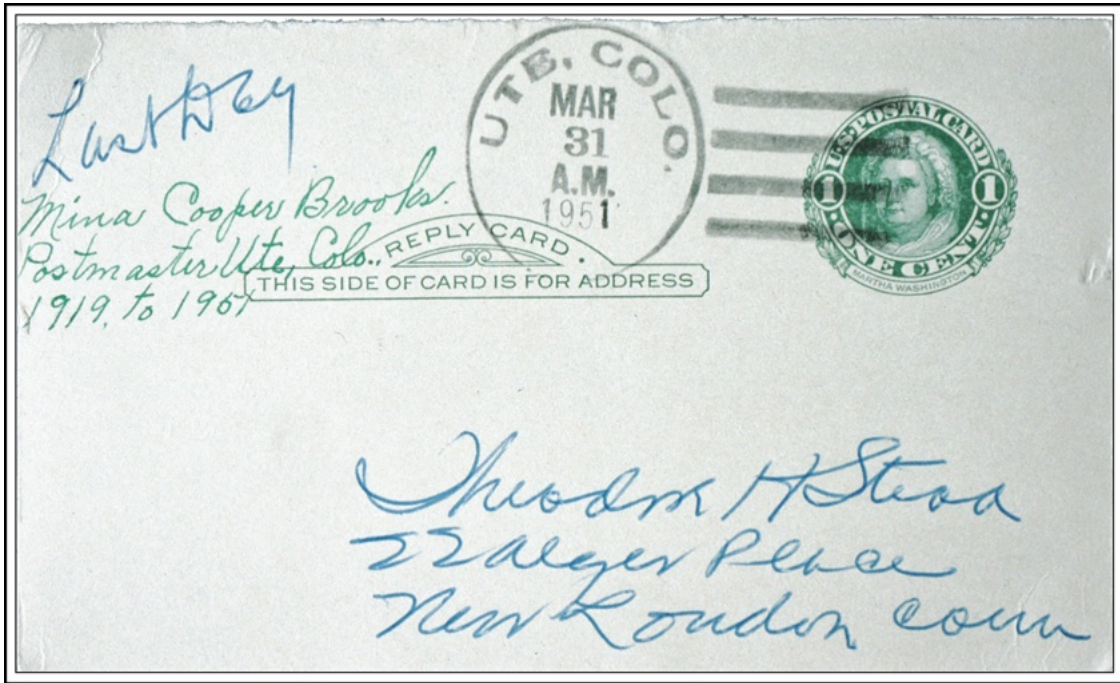 Last Day
Mina Cooper Brooks.
Postmaster Ute, Colo.,
1919, to 1951
UTE, COLO.
MAR
31
A.M.
1951
U.S. POSTAL CARD
1 1
ONE CENT
MARTHA WASHINGTON
REPLY CARD.
THIS SIDE OF CARD IS FOR ADDRESS
Theodore H Stead
22 Alger Place
New London Conn